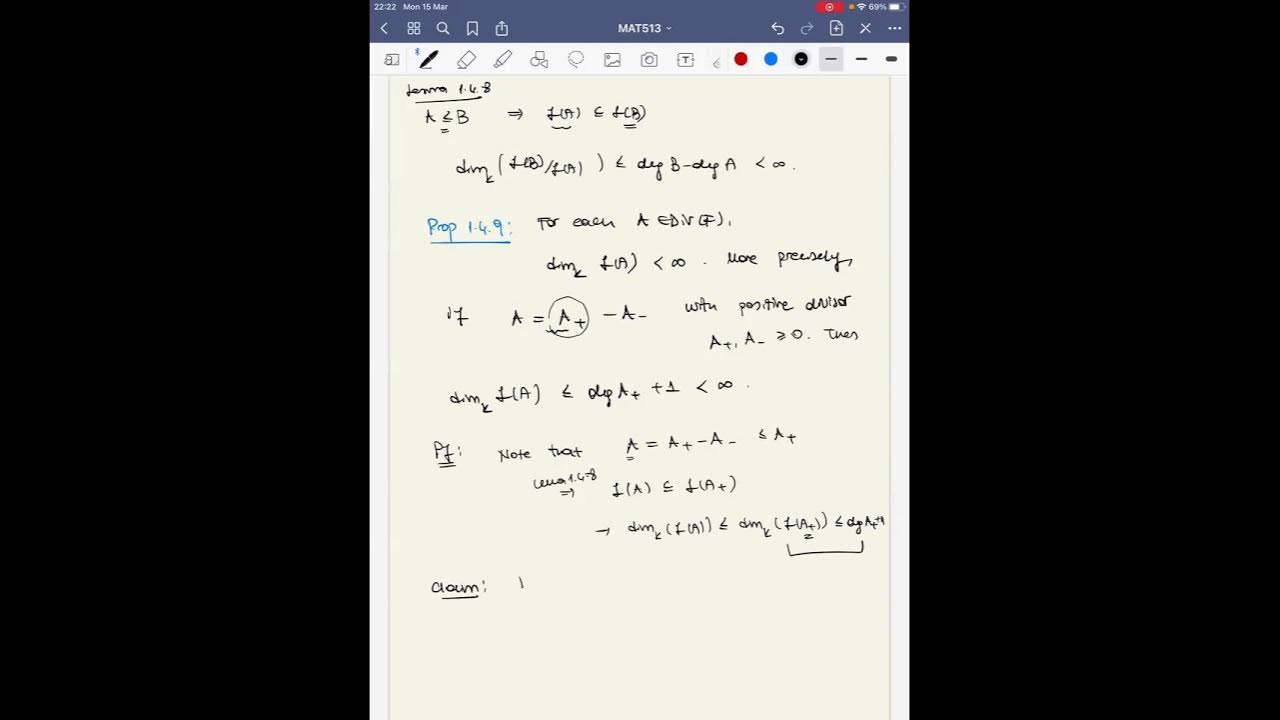 22:22 Mon 15 Mar
69%
MAT513
T
Lemma 1.4.8
A ≤ B ⇒ L(A) ⊆ L(B)
dim_k (L(B)/L(A)) ≤ deg B - deg A < ∞.
Prop 1.4.9: For each A ∈ Div(F),
dim_k L(A) < ∞. More precisely,
if A = A₊ - A₋ with positive divisor
A₊, A₋ ≥ 0. Then
dim_k L(A) ≤ deg A₊ + 1 < ∞.
Pf: Note that A = A₊ - A₋ ≤ A₊
Lemma 1.4.8 ⇒ L(A) ⊆ L(A₊)
→ dim_k (L(A)) ≤ dim_k (L(A₊)) ≤ deg A₊+1
Claim: